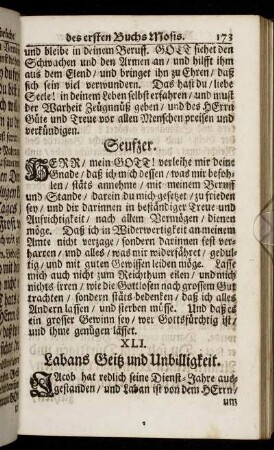 des ersten Buchs Mosis. 173
und bleibe in deinem Beruff. GOTT siehet den
Schwachen und den Armen an / und hilfft ihm
aus dem Elend / und bringet ihn zu Ehren / daß
sich sein viel verwundern. Das hast du / liebe
Seele! in deinem Leben selbst erfahren / und must
der Warheit Zeugnüß geben / und des HErrn
Güte und Treue vor allen Menschen preisen und
verkündigen.
Seufzer.
HERR / mein GOTT! verleihe mir deine
Gnade / daß ich mich dessen / was mir befoh-
len / stäts annehme / mit meinem Beruff
und Stande / darein du mich gesetzet / zu frieden
sey / und dir darinnen in beständiger Treue und
Aufrichtigkeit / nach allem Vermögen / dienen
möge. Daß ich in Widerwertigkeit an meinem
Amte nicht verzage / sondern darinnen fest ver-
harren / und alles / was mir widerfähret / gedul-
tig / und mit guten Gewissen leiden möge. Lasse
mich auch nicht zum Reichthum eilen / und mich
nichts irren / wie die Gottlosen nach grossem Gut
trachten / sondern stäts bedenken / daß ich alles
Andern lassen / und sterben müsse. Und daß es
ein grosser Gewinn sey / wer Gottsfürchtig ist /
und ihme genügen lässet.
XLI.
Labans Geitz und Unbilligkeit.
JAcob hat redlich seine Dienst-Jahre aus-
gestanden / und Laban ist von dem HErrn /
um